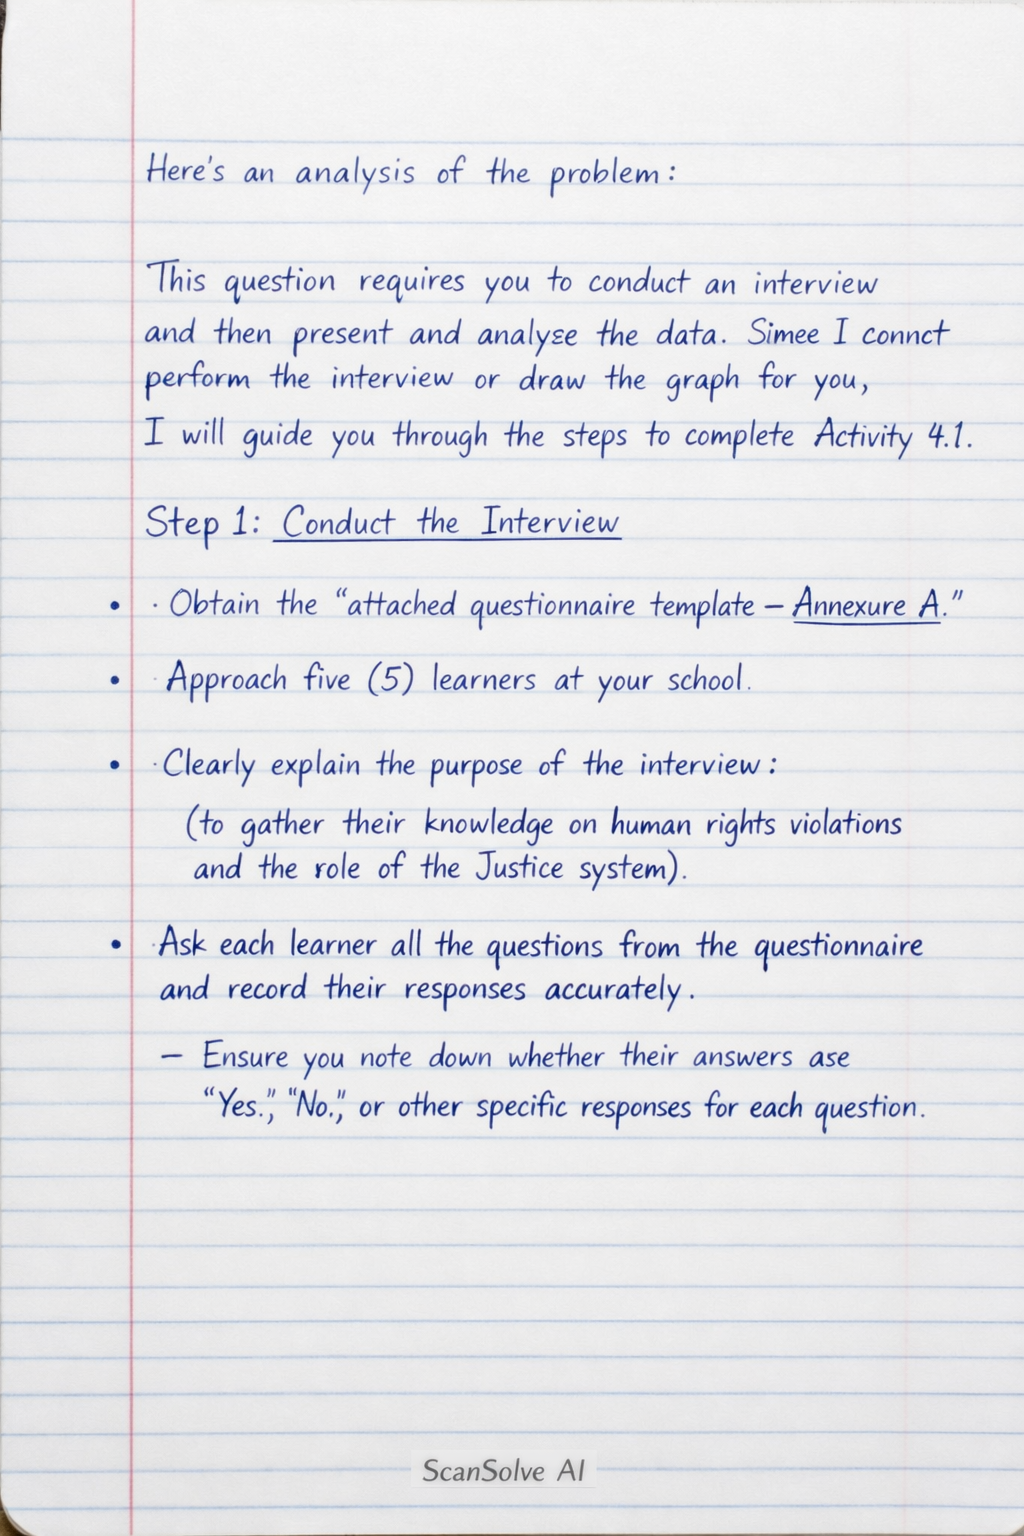 Here's an analysis of the problem:
This question requires you to conduct an interview
and then present and analyse the data. Simee I connct
perform the interview or draw the graph for you,
I will guide you through the steps to complete Activity 4.1.
Step 1: Conduct the Interview
• · Obtain the “attached questionnaire template – Annexure A.”
• · Approach five (5) learners at your school.
• · Clearly explain the purpose of the interview:
(to gather their knowledge on human rights violations
and the role of the Justice system).
• · Ask each learner all the questions from the questionnaire
and record their responses accurately.
– Ensure you note down whether their answers ase
“Yes.”, “No.”, or other specific responses for each question.
ScanSolve AI